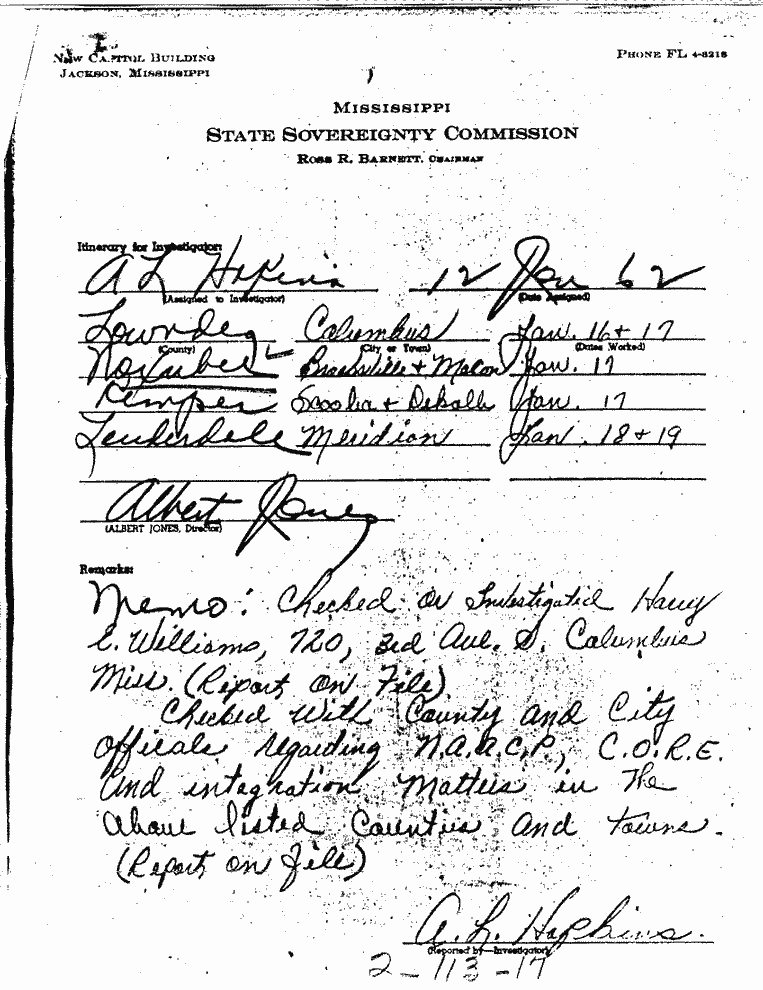 New Capitol Building
Phone FL 4-8218
Jackson, Mississippi
Mississippi
State Sovereignty Commission
Ross R. Barnett, Chairman
Itinerary for Investigator:
A L Hopkins 12 Jan 62
(Assigned to Investigator) (Date Assigned)
Lowndes Columbus Jan. 16 + 17
(County) (City or Town) (Dates Worked)
Noxubee Brooksville + Macon Jan. 17
Kemper Scooba + Dekalb Jan. 17
Lauderdale Meridian Jan. 18 + 19
Albert Jones
(ALBERT JONES, Director)
Remarks:
Memo: Checked or Investigated Harry
E. Williams, 720, 3rd Ave. S. Columbus
Miss. (Report on File)
Checked With County and City
officals regarding N.A.A.C.P., C.O.R.E.
and integration Matters in The
above listed Counties and towns.
(Report on File)
A. L. Hopkins.
(Reported by—Investigator)
2-113-17